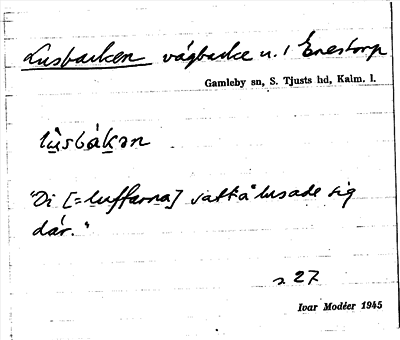 Lusbacken vägbacke u. / Enestorp
Gamleby sn, S. Tjusts hd, Kalm. l.
lùsbákən
"Di [=luffarna] satt å lusade sig
där."
s 27
Ivar Modéer 1945